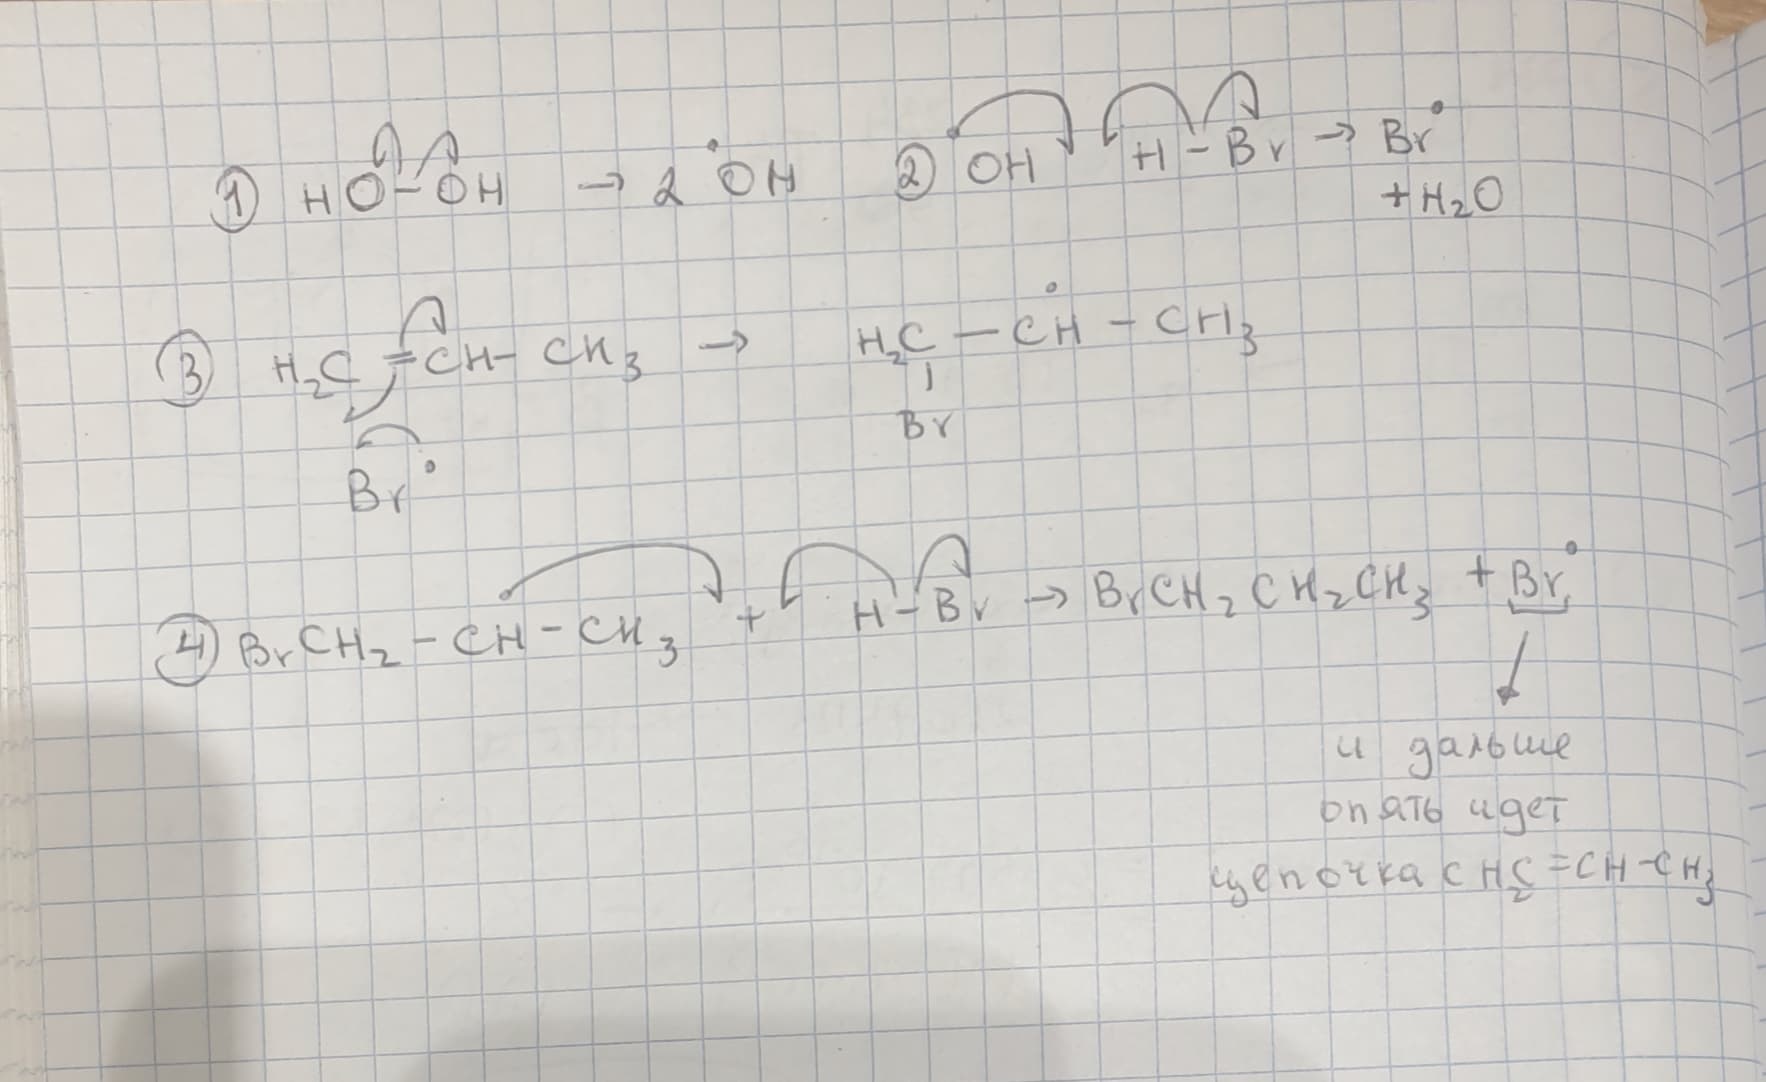 ① HO-OH → 2 •OH ② •OH H-Br → Br•
+ H₂O
③ H₂C=CH-CH₃ → H₂C-ĊH-CH₃
Br• Br
④ BrCH₂-ĊH-CH₃ + H-Br → BrCH₂CH₂CH₃ + Br•
и дальше
опять идет
цепочка с H₂C=CH-CH₃